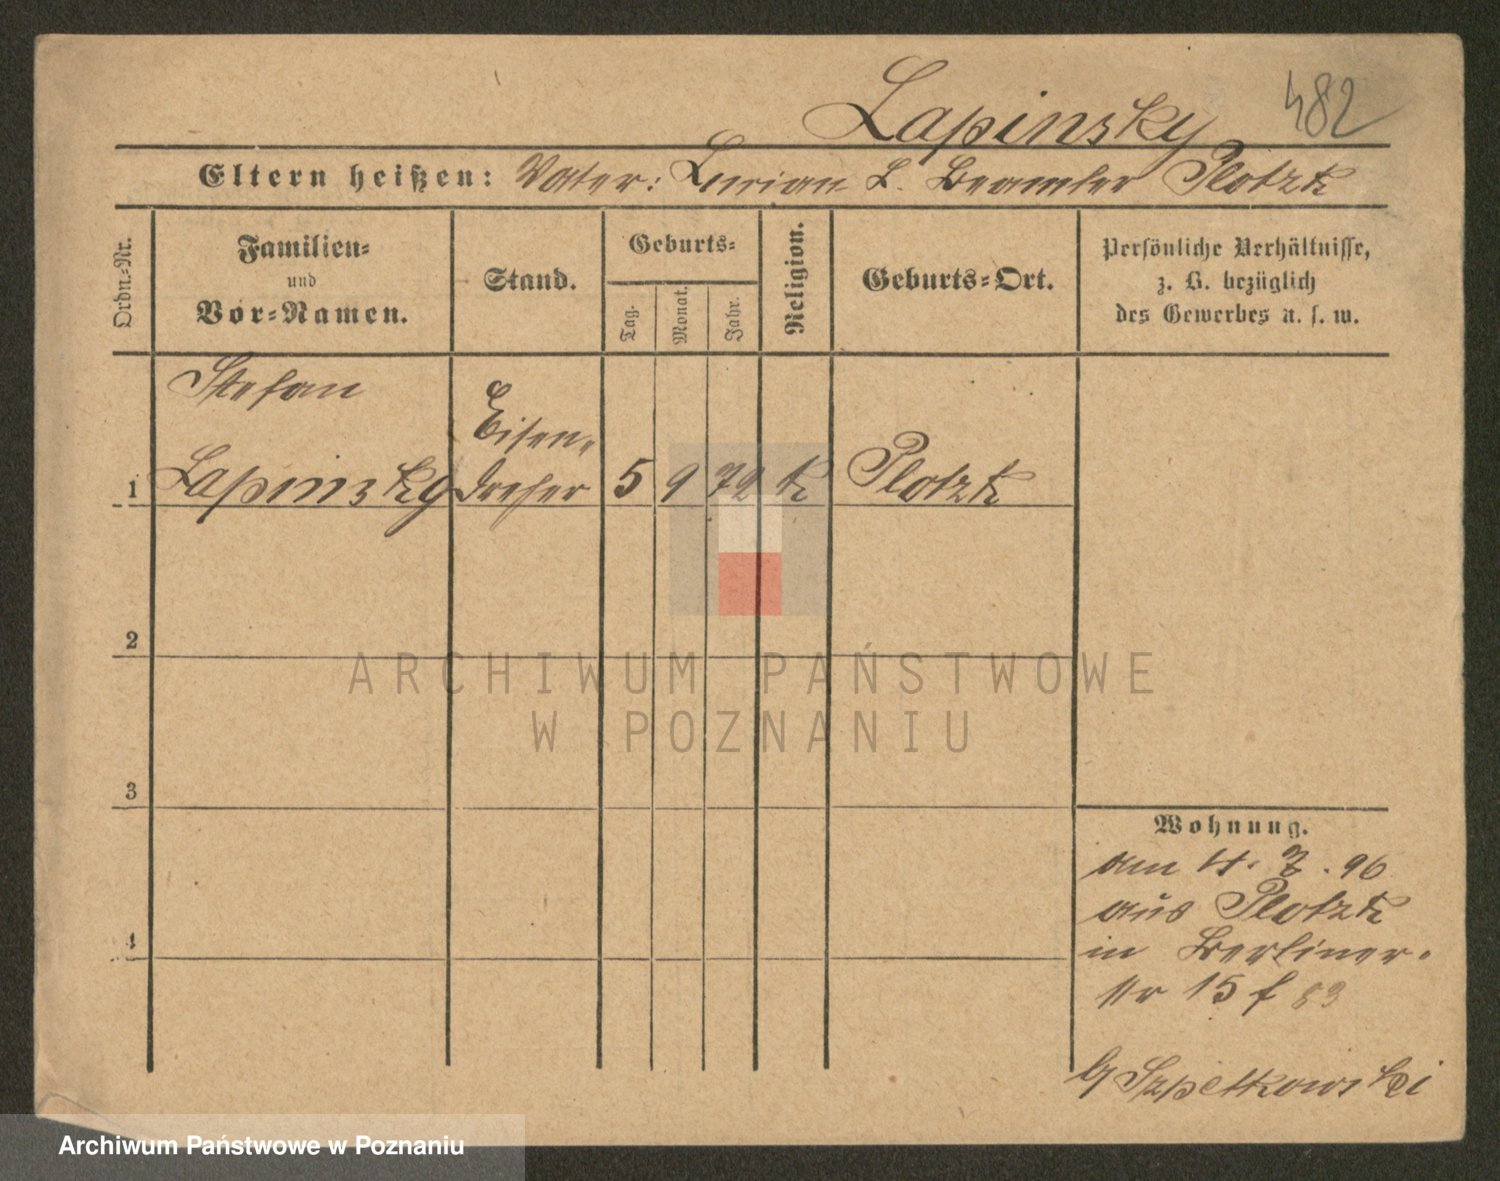 Lapinsky 482
Eltern heißen: Vater: Lucian L. Beamter Plotzk
Ordn.-Nr.
Familien-
und
Vor-Namen.
Stand.
Geburts-
Tag.
Monat.
Jahr.
Religion.
Geburts-Ort.
Persönliche Verhältnisse,
z. B. bezüglich
des Gewerbes u. s. w.
Stefan
Eisen-
1 Lapinsky dreher 5 9 72 k Plotzk
2
3
4
ARCHIWUM PAŃSTWOWE
W POZNANIU
Wohnung.
am 11. 7. 96
aus Plotzk
in Berliner-
str 15 f 83
b/ Szpetkowski
Archiwum Państwowe w Poznaniu